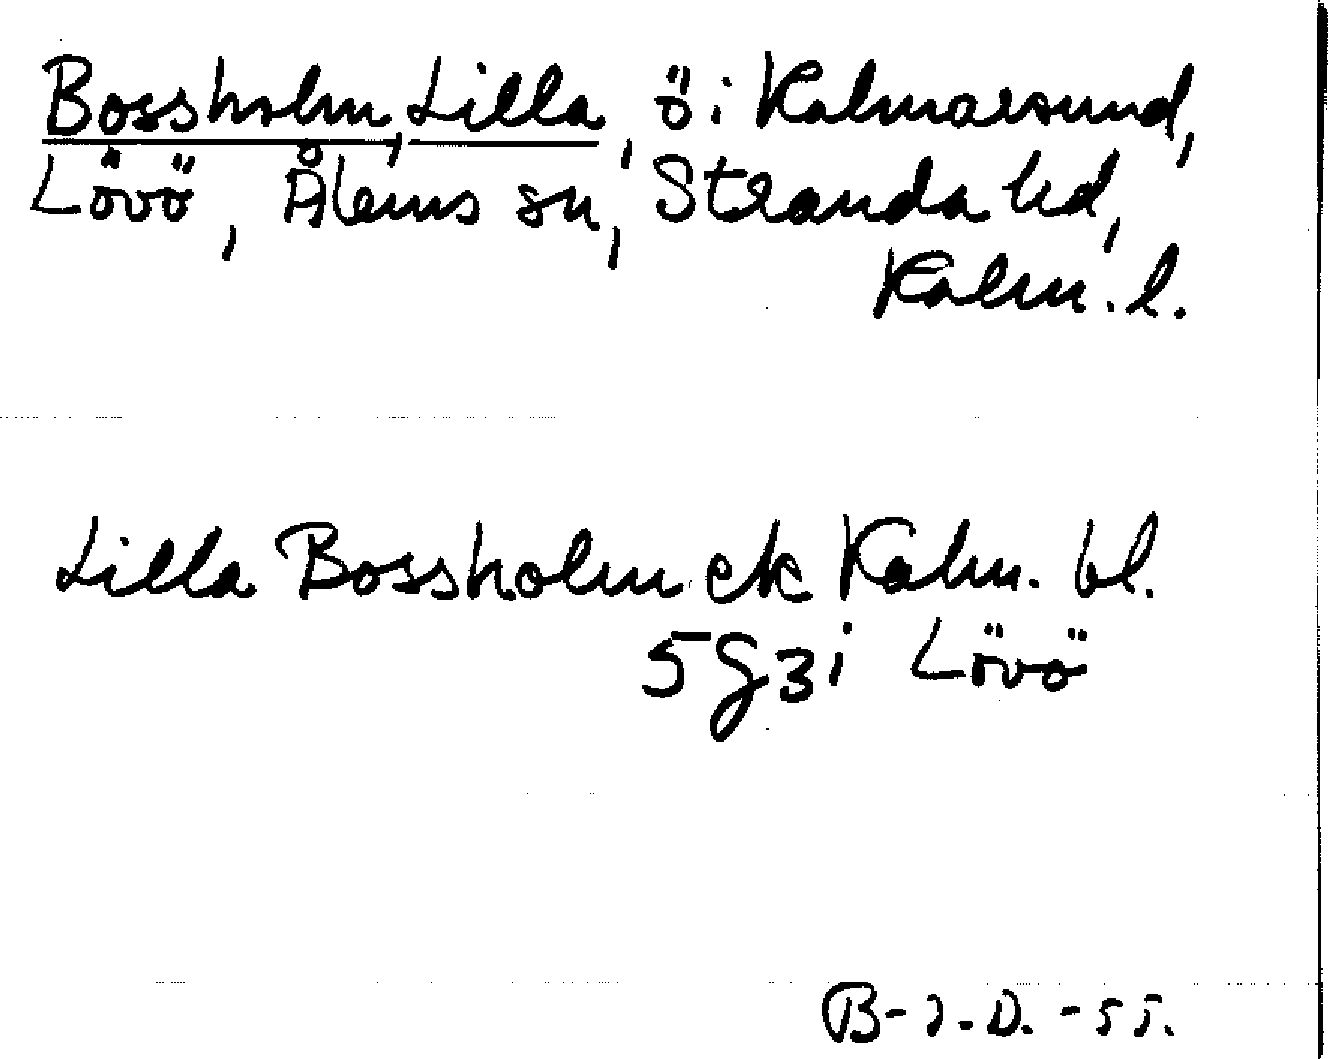 Bossholm, Lilla, ö i Kalmarsund,
Lövö, Ålems sn, Stranda hd,
Kalm. l.
Lilla Bossholm ek Kalm. bl.
5G3i Lövö
B-J.D. -55.